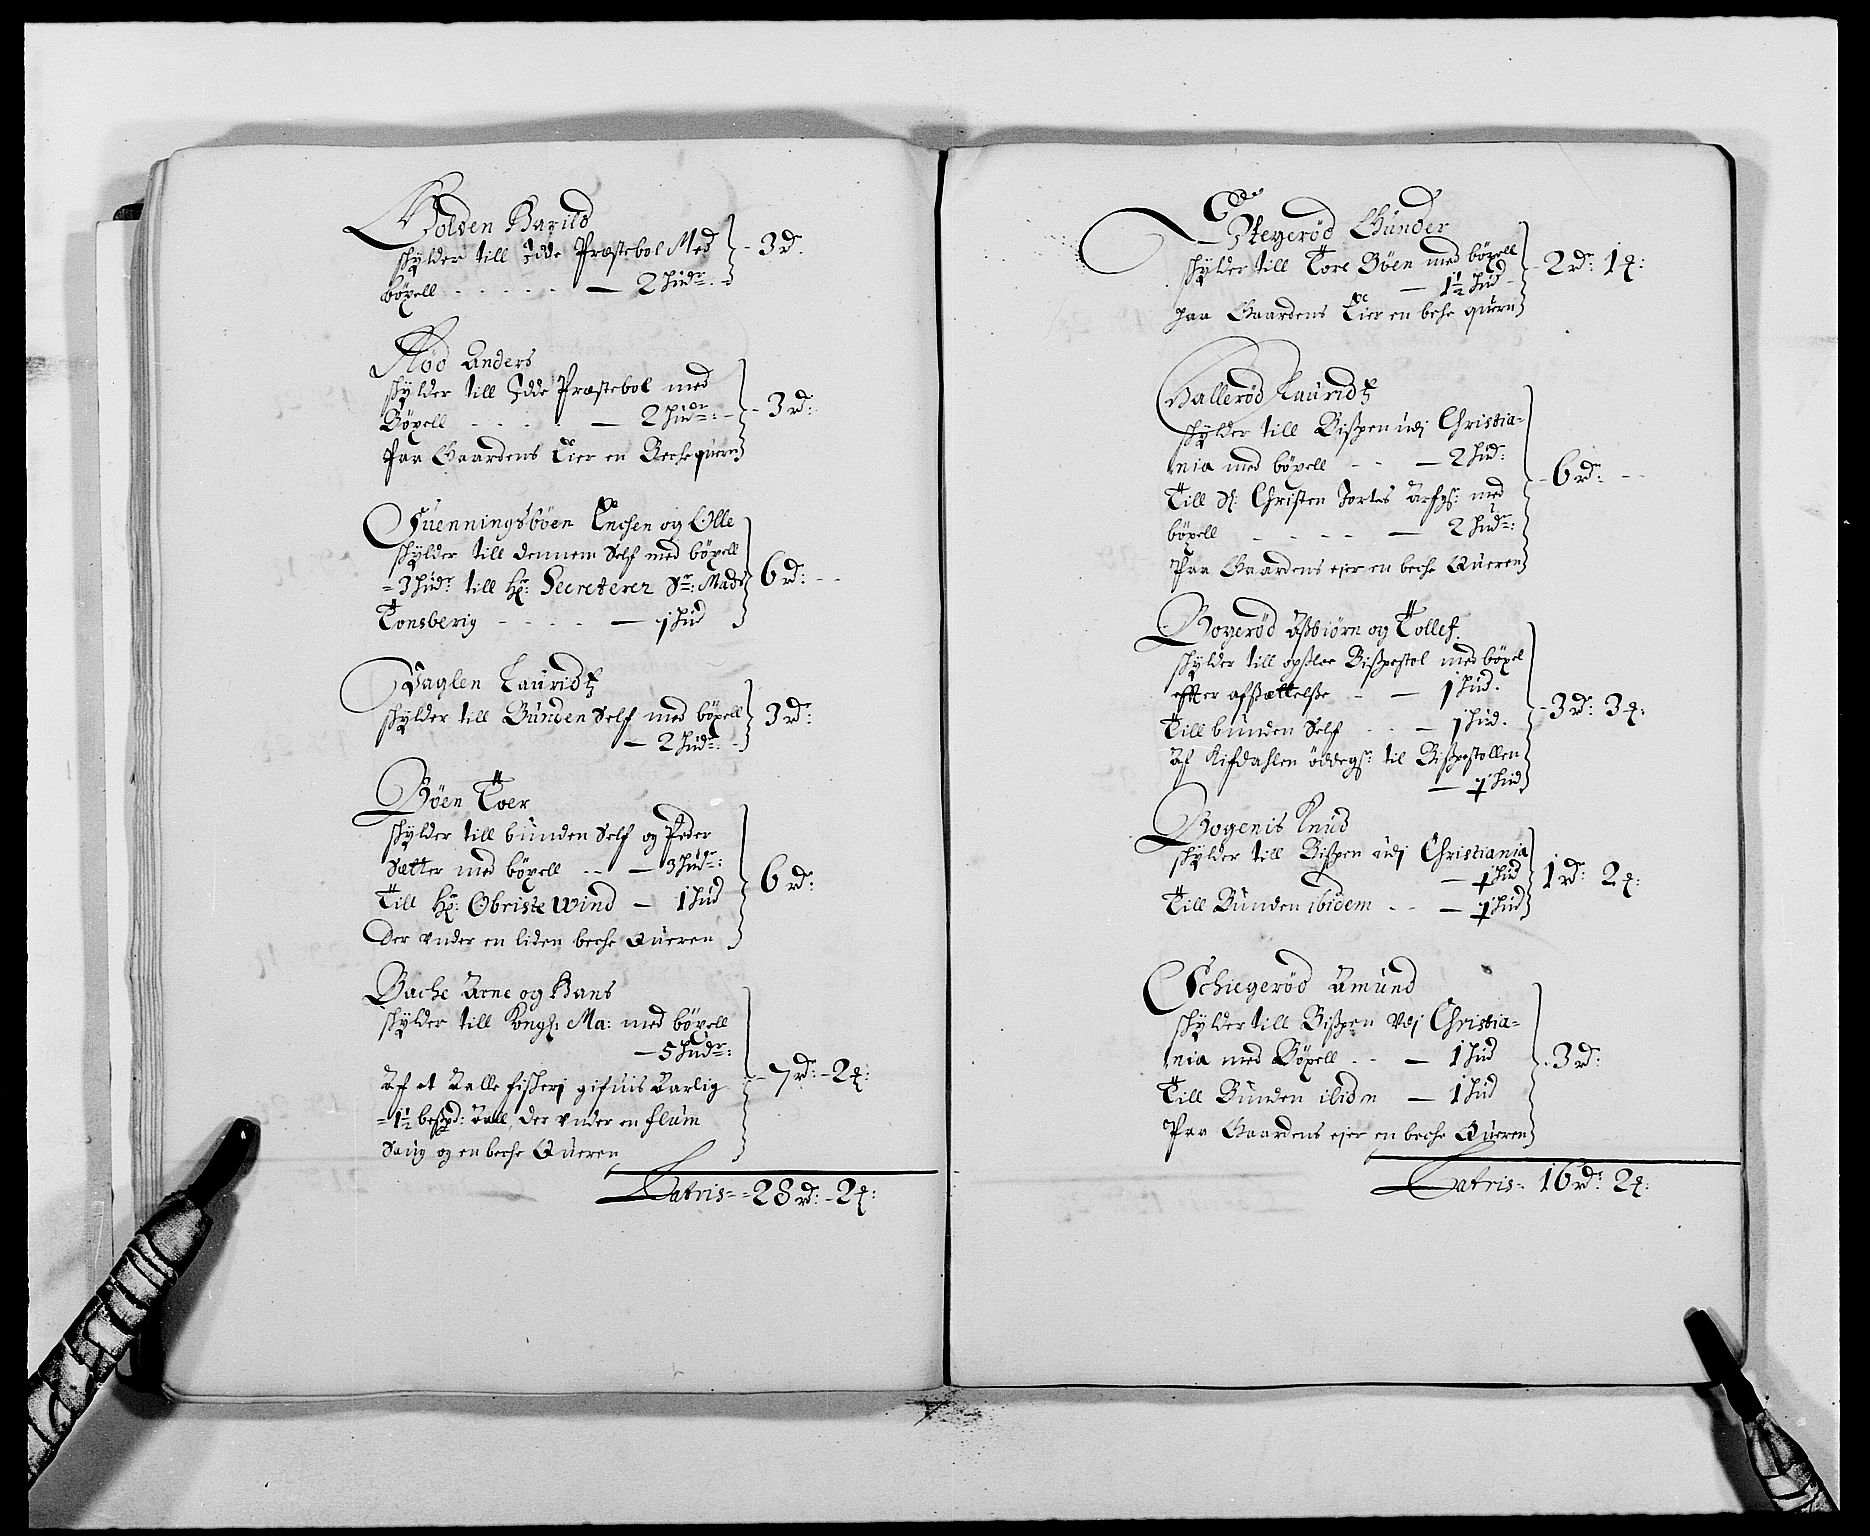 Holden Harild
schylder till Idde Præstebol Med
böxell - - - - - — 2 hudr: - 3 rd:
Röd Anders
schylder till Idde Præstebol med
Böxell - - - - — 2 hudr: - - 3 rd:
Paa Gaardens Eier en Beche quern
Suenningsböen Enchen og Olle
schylder till dennem Self med böxell
= 3 hudr: till Hr: Secreterer Sr: Mads 6 rd: - -
Tonsberig - - - - — 1 hud
Faglen Lauridtz
schylder till Bunden Self med böxell 3 rd:
— 2 hudr: -
Böen Toer
schylder till bunden Self og Peder
Sætter med böxell - - — 3 hudr:
Till Hr: Obriste Wind — 1 hud 6 rd:
Der vnder en liden beche Queren
Bache Arne og Hans
schylder till Kongl: Ma: med böxell
— 5 hudr:
Af et Aalle fischerj gifuis Aarlig - 7 rd: - 2 ꝗ:
= 1½ besspd: Aall, Der vnder en flum
Saug og en beche Queren
Latris = = 28 rd: - 2 ꝗ:
Stegeröd Gunder
schylder till Tore Böen med böxell
— 1½ hud - 2 rd: 1 ꝗ:
paa Gaardens Eier en beche quern
Halleröd Lauridtz
schylder till Bispen udj Christia-
nia med böxell - - — 2 hud:
Till Sl: Christen Jortes Arfgr: med - 6 rd: - -
böxell - - - - — 2 hudr:
Paa Gaardens ejer en beche Queren
Bogeröd Assbiörn og Tollef
schylder till opsloe Bispestol med böxel
effter afsættelsse - — 1 hud.
Till bunden Self - - — 1 hud. - 3 rd: 3 ꝗ:
Af Kifdahlen öddegr: til Bispestollen
— ½ hud
Bogenis Knud
schylder till Bispen udj Christiania
— ½ hud 1 rd: 2 ꝗ:
Till Bunden ibidem - - — ½ hud
Schiegeröd Amund
schylder till Bispen Vdj Christia=
nia med Böxell - - — 1 hud - 3 rd:
Till Bunden ibidm — 1 hud
Paa Gaardens ejer en beche Queren
Latris = 16 rd: 2 ꝗ: